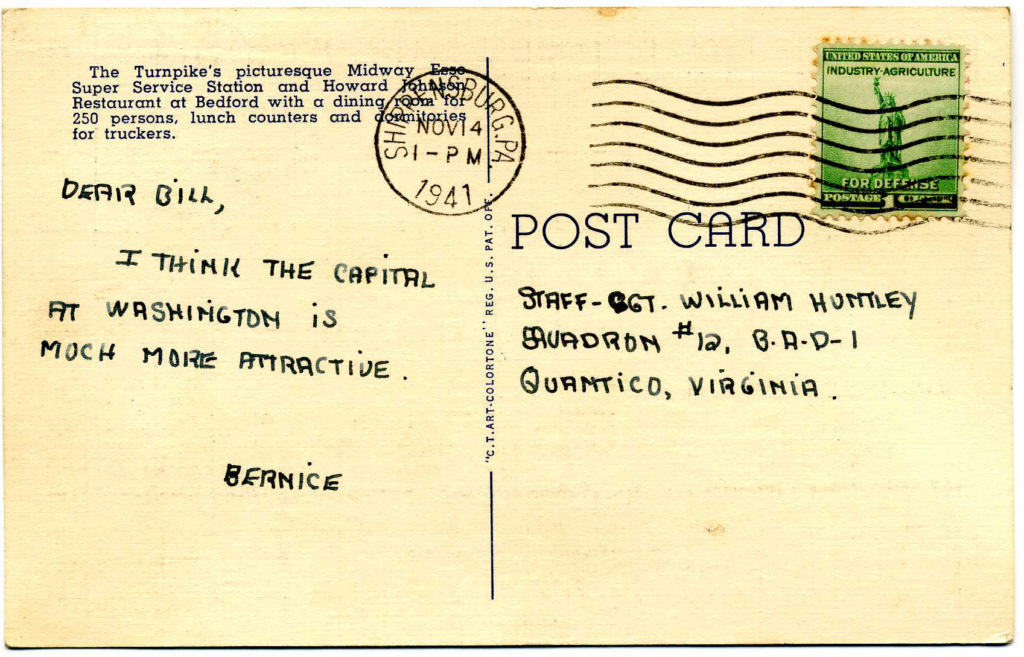 The Turnpike's picturesque Midway Esso
Super Service Station and Howard Johnson
Restaurant at Bedford with a dining room for
250 persons, lunch counters and dormitories
for truckers.
SHIPPENSBURG, PA.
NOV 14
1-PM
1941
UNITED STATES OF AMERICA
INDUSTRY·AGRICULTURE
FOR DEFENSE
POSTAGE 1 CENT
DEAR BILL,
I THINK THE CAPITAL
AT WASHINGTON IS
MUCH MORE ATTRACTIVE.
BERNICE
"C.T. ART-COLORTONE" REG. U.S. PAT. OFF.
POST CARD
STAFF-SGT. WILLIAM HUNTLEY
SQUADRON #12, B-A-D-1
QUANTICO, VIRGINIA.